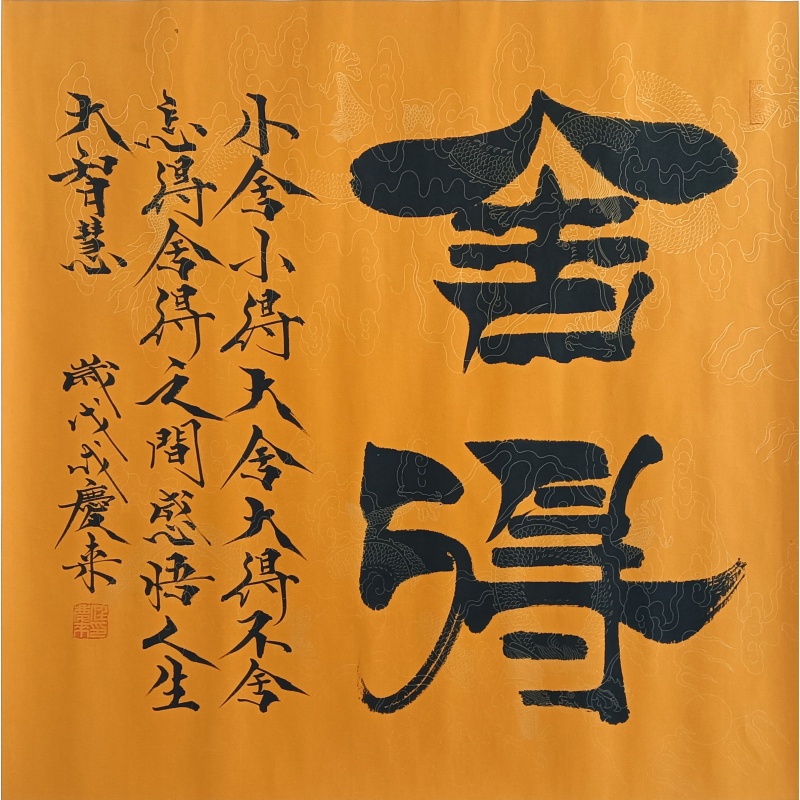 舍得
小舍小得大舍大得不舍
怎得舍得之間感悟人生
大智慧
歲戊戌慶来